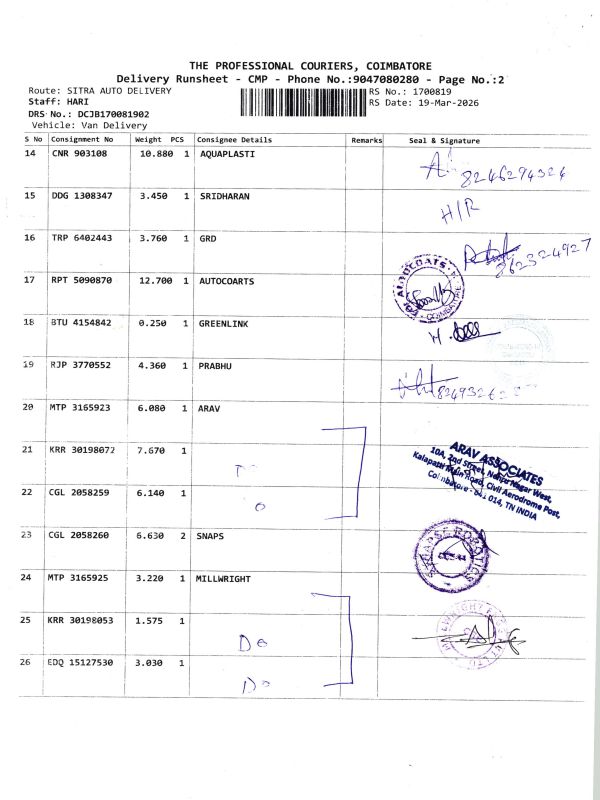 THE PROFESSIONAL COURIERS, COIMBATORE
Delivery Runsheet - CMP - Phone No.:9047080280 - Page No.:2
Route: SITRA AUTO DELIVERY
RS No.: 1700819
Staff: HARI
RS Date: 19-Mar-2026
DRS No.: DCJB170081902
Vehicle: Van Delivery
S No Consignment No Weight PCS Consignee Details Remarks Seal & Signature
14 CNR 903108 10.880 1 AQUAPLASTI
8246294324
15 DDG 1308347 3.450 1 SRIDHARAN
H/R
16 TRP 6402443 3.760 1 GRD
862324927
17 RPT 5090870 12.700 1 AUTOCOARTS
COIMBATORE
18 BTU 4154842 0.250 1 GREENLINK
19 RJP 3770552 4.360 1 PRABHU
20 MTP 3165923 6.080 1 ARAV
21 KRR 30198072 7.670 1
ARAV ASSOCIATES
10A, 2nd Street, Nehru Nagar West,
Kalapatti Main Road, Civil Aerodrome Post,
Coimbatore - 641 014, TN INDIA
22 CGL 2058259 6.140 1
23 CGL 2058260 6.630 2 SNAPS
ROBOTICS
24 MTP 3165925 3.220 1 MILLWRIGHT
25 KRR 30198053 1.575 1
Do
26 EDQ 15127530 3.030 1
Do